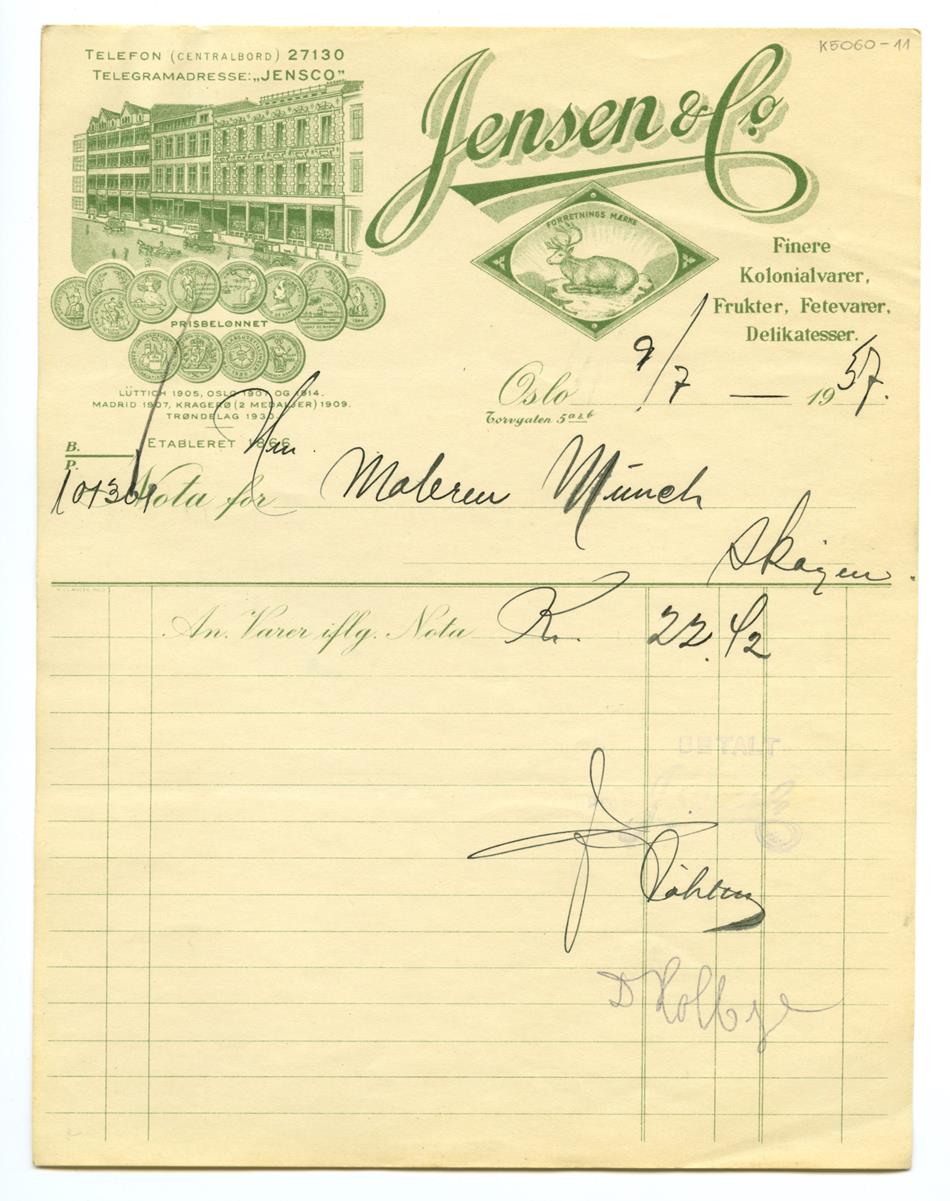 K5060-11
TELEFON (CENTRALBORD) 27130
TELEGRAMADRESSE: „JENSCO"
Jensen & Co.
FORRETNINGS MÆRKE
Finere
Kolonialvarer,
Frukter, Fetevarer,
Delikatesser.
PRISBELØNNET
LÜTTICH 1905, OSLO 1907 OG 1914.
MADRID 1907, KRAGERØ (2 MEDALJER) 1909.
TRØNDELAG 1930.
ETABLERET 1866
Oslo 9/7 — 1937.
Torvgaten 5 a & b
B.
P.
Hrn.
Nota for Maleren Münch
Skøyen.
An. Varer iflg. Nota Kr. 22.42
BETALT
D Holbye